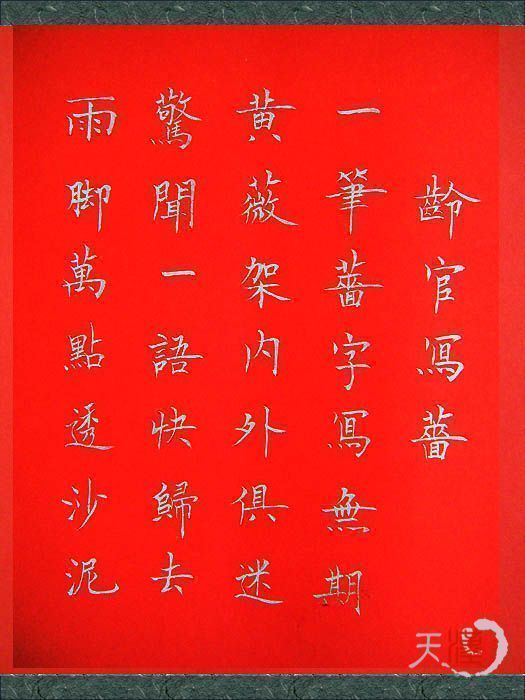 齡官寫薔
一筆薔字寫無期
黄薇架内外俱迷
驚聞一語快歸去
雨脚萬點透沙泥
天漢